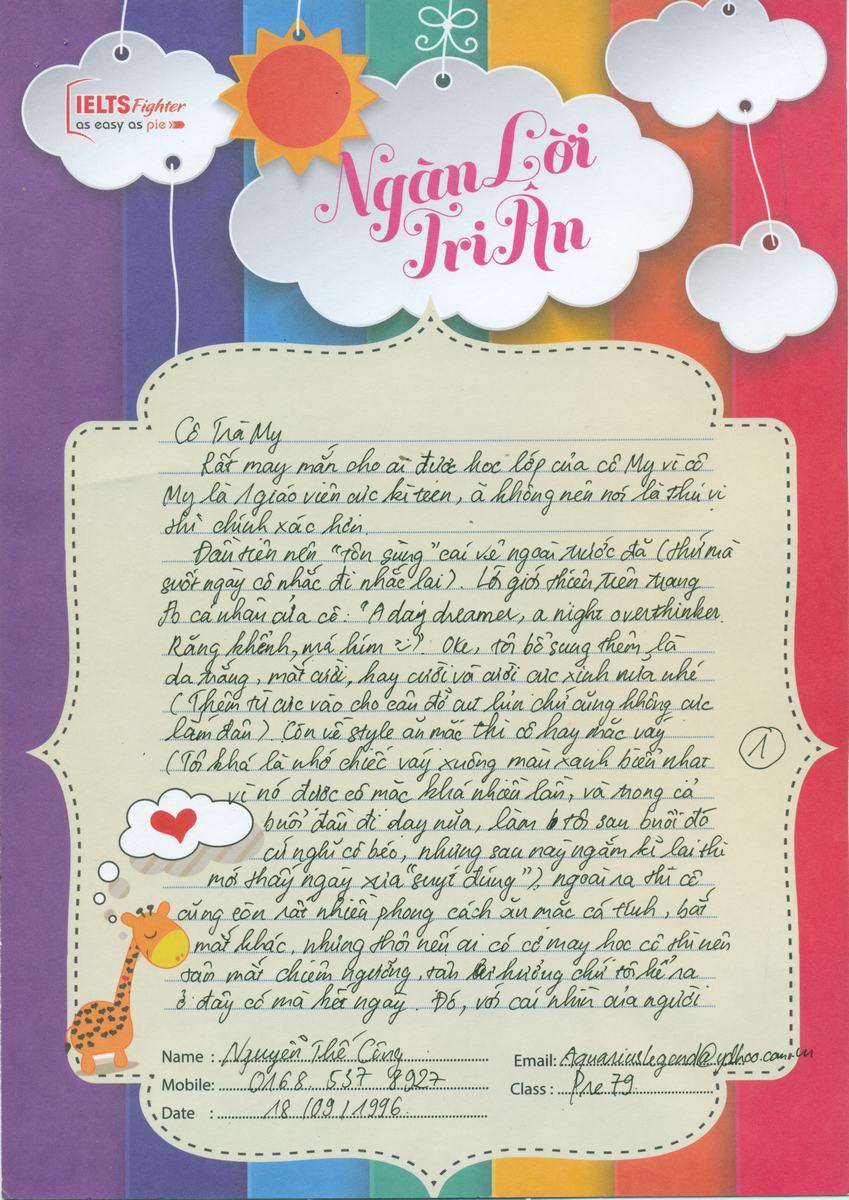 IELTS Fighter
as easy as pie
Ngàn Lời
Tri Ân
Cô Trà My
Rất may mắn cho ai được học lớp của cô My vì cô
My là 1 giáo viên cực kì teen, à không nên nói là thú vị
thì chính xác hơn.
Đầu tiên nên "tôn sùng" cái vẻ ngoài trước đã (thứ mà
suốt ngày cô nhắc đi nhắc lại). Lời giới thiệu trên trang
fb cá nhân của cô: "A day dreamer, a night overthinker.
Răng khểnh, má hím :)). Oke, tôi bổ sung thêm là
da trắng, mắt cười, hay cười và cười cực xinh nữa nhé
(Thêm từ cực vào cho câu đỡ cụt lủn chứ cũng không cực
lắm đâu). Còn về style ăn mặc thì cô hay mặc váy
(Tôi khá là nhớ chiếc váy xuông màu xanh biển nhạt
vì nó được cô mặc khá nhiều lần, và trong cả
buổi đầu đi dạy nữa, làm tôi sau buổi đó
cứ nghĩ cô béo, nhưng sau này ngắm kĩ lại thì
mới thấy ngày xưa "suýt đúng"), ngoài ra thì cô
cũng còn rất nhiều phong cách ăn mặc cá tính, bắt
mắt khác, nhưng thôi nếu ai có cơ may học cô thì nên
tận mắt chiêm ngưỡng, tận hưởng chứ tôi kể ra
ở đây có mà hết ngay. Đó, với cái nhìn của người
1
Name : Nguyễn Thế Công
Email: Aquariuslegend@yahoo.com.vn
Mobile: 0168 537 8927
Class : Pre 79
Date : 18/09/1996